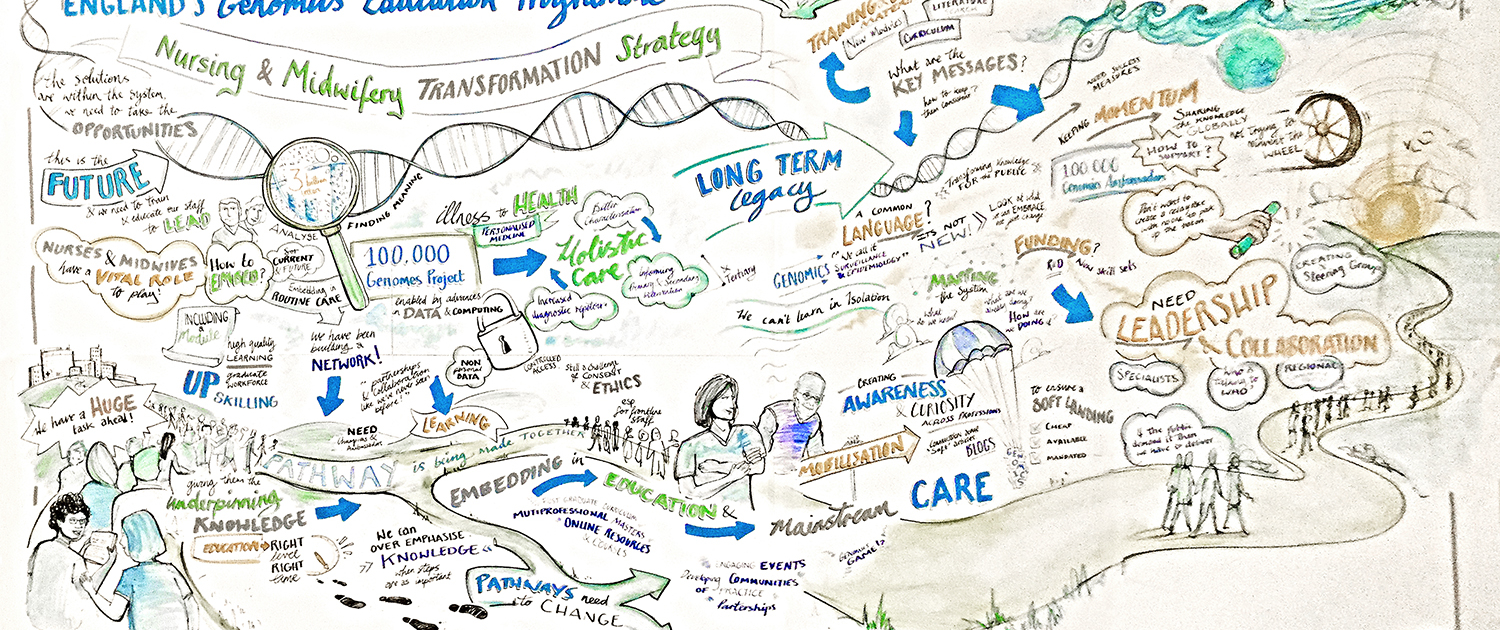 ENGLAND'S Genomics Education Programme
Nursing & Midwifery TRANSFORMATION Strategy
the solutions
are within the system,
we need to take the
OPPORTUNITIES
this is the
FUTURE
& we need to train
& educate our staff
to LEAD
NURSES & MIDWIVES
have a
VITAL ROLE
to play!
How to
EMBED?
ANALYSE
FINDING MEANING
3 billion
for
CURRENT
& FUTURE
Embedding in
ROUTINE CARE
illness to HEALTH
PERSONALISED
MEDICINE
100,000
Genomes Project
Holistic
Care
Better
Characterisation
Informing
Primary & Secondary
Intervention
Tertiary
Increased
diagnostic
enabled by advances
in DATA & COMPUTING
NON
DATA
CONTROLLED
ACCESS
Still a challenge
CONSENT
& ETHICS
esp
for frontline
staff
INCLUDING
a
Module
high quality
LEARNING
graduate
WORKFORCE
UP SKILLING
We have been
building a
NETWORK!
"partnerships
& Collaboration
like we've never seen
before!"
LEARNING
NEED
We have a HUGE
task ahead!
PATHWAY is being made TOGETHER
giving them the
underpinning
KNOWLEDGE
EDUCATION
RIGHT
level
RIGHT
time
We can
OVER EMPHASISE
KNOWLEDGE
when steps
are as important
EMBEDDING in
EDUCATION &
Mainstream CARE
POST GRADUATE CURRICULUM
MUTIPROFESSIONAL MASTERS
ONLINE RESOURCES
& COURSES
PATHWAYS need
to CHANGE
ENGAGING EVENTS
Developing COMMUNITIES
OF PRACTICE
Partnerships
GAME!
CREATING
AWARENESS
& CURIOSITY
ACROSS PROFESSIONS
MOBILISATION
BLOGS
LONG TERM
legacy
TRAINING
New Modules
LITERATURE
CURRICULUM
What are the
KEY MESSAGES?
how to keep
them consistent
NEED SUCCESS
MEASURES
KEEPING MOMENTUM
SHARING
the KNOWLEDGE
GLOBALLY
HOW TO
SUPPORT?
Not trying to
reinvent the
WHEEL
Transforming Knowledge
FOR the PUBLIC
100,000
Genomes Ambassadors
A COMMON
LANGUAGE?
GENOMICS
"We call it
SURVEILLANCE
& EPIDEMIOLOGY"
"IT'S NOT
NEW!"
LOOK at what
can EMBRACE
change
Don't want to
create a
with no one to pass
to the baton
FUNDING?
R&D
New skill sets
the System
what do
we know?
what are we
already doing?
HOW are
we DOING it
We can't learn in Isolation
NEED
LEADERSHIP
& COLLABORATION
CREATING
Steering Groups
SPECIALISTS
WHO
REGIONAL
If the public
demand it then
we have to deliver
TO ensure a
SOFT LANDING
CHEAP
AVAILABLE
MANDATED